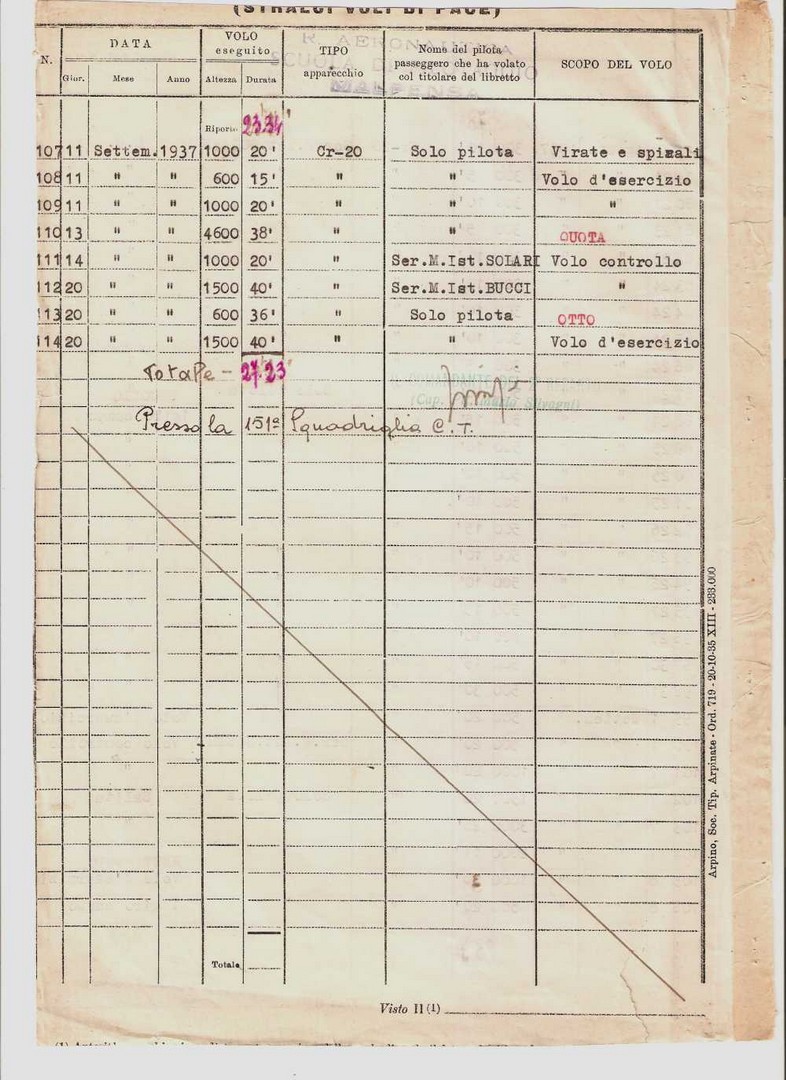 (STRALCI VOLI DI PACE)
R. AERONAUTICA
SCUOLA
MALPENSA
N. DATA VOLO eseguito TIPO apparecchio Nome del pilota passeggero che ha volato col titolare del libretto SCOPO DEL VOLO
Gior. Mese Anno Altezza Durata
Riporto 23.34'
107 11 Settem. 1937 1000 20' Cr-20 Solo pilota Virate e spirali
108 11 " " 600 15' " " Volo d'esercizio
109 11 " " 1000 20' " " "
110 13 " " 4600 38' " " QUOTA
111 14 " " 1000 20' " Ser.M.Ist.SOLARI Volo controllo
112 20 " " 1500 40' " Ser.M.Ist.BUCCI "
113 20 " " 600 36' " Solo pilota OTTO
114 20 " " 1500 40' " " Volo d'esercizio
Totale - 27.23'
COMANDANTE
(Cap. Silvagni)
Presso la 151ª Squadriglia C.T.
Totale
Visto Il (1)
Arpino, Soc. Tip. Arpinate - Ord. 719 - 20-10-35 XIII - 233.000